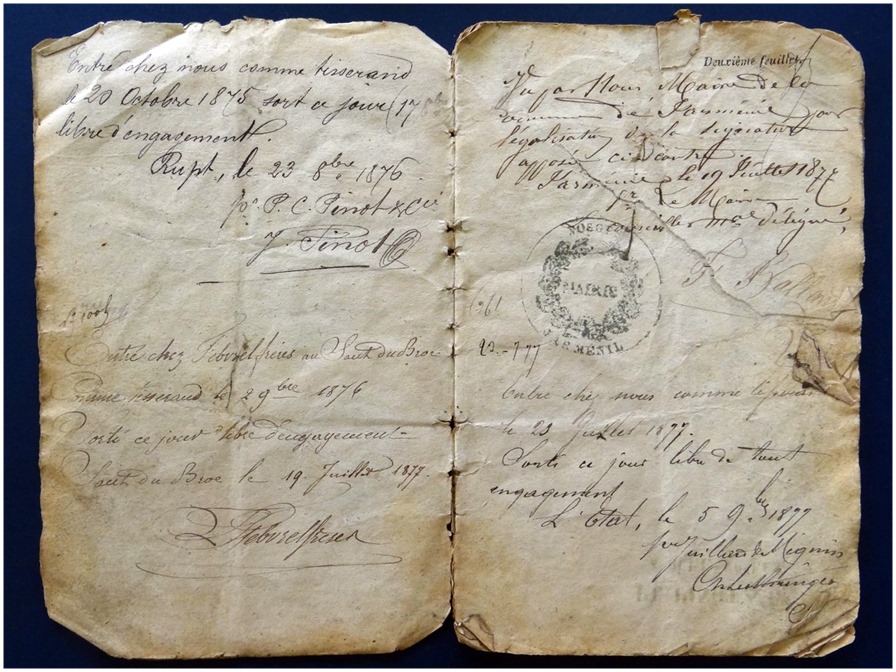 Entré chez nous comme tisserand
le 20 Octobre 1875 sort ce jour (17
libre d'engagement.
Rupt, le 23 8bre 1876
pr P. C. Pinot & Cie
J. Pinot
Entre chez Febvrel frères au Saut du Broc
comme tisserand le 2 9bre 1876
Sorti ce jour libre d'engagement
Saut du Broc le 19 Juillet 1877.
Febvrel frères
Deuxième feuillet
Vu par Nous Maire de la
commune de Jarménil pour
légalisation de la signature
apposée ci-contre
Jarménil, le 19 Juillet 1877
pr Le Maire
Conseiller mal délégué,
VOSGES
MAIRIE
JARMENIL
23-7-77
Entre chez nous comme
le 23 Juillet 1877.
Sorti ce jour libre de tout
engagement
L'Etat, le 5 9bre 1877